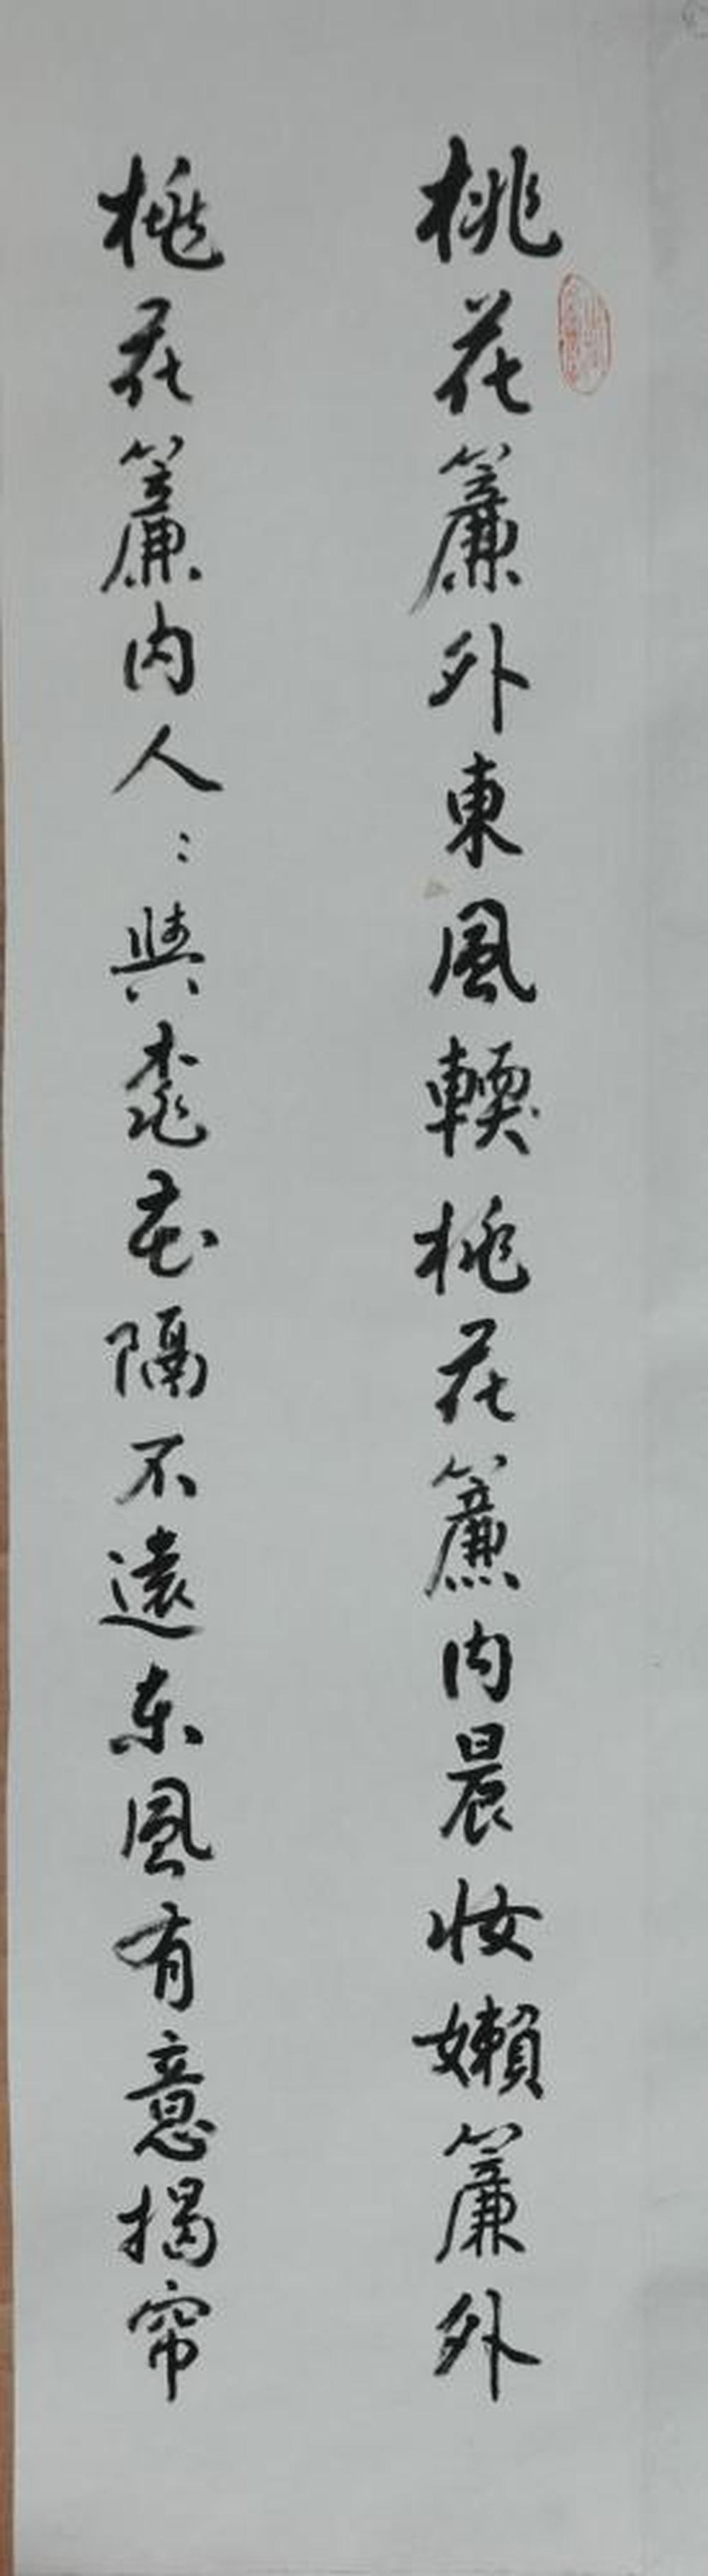 桃花簾外東風輭桃花簾内晨妆嬾簾外
桃花簾内人々與桃花隔不遠东風有意揭帘